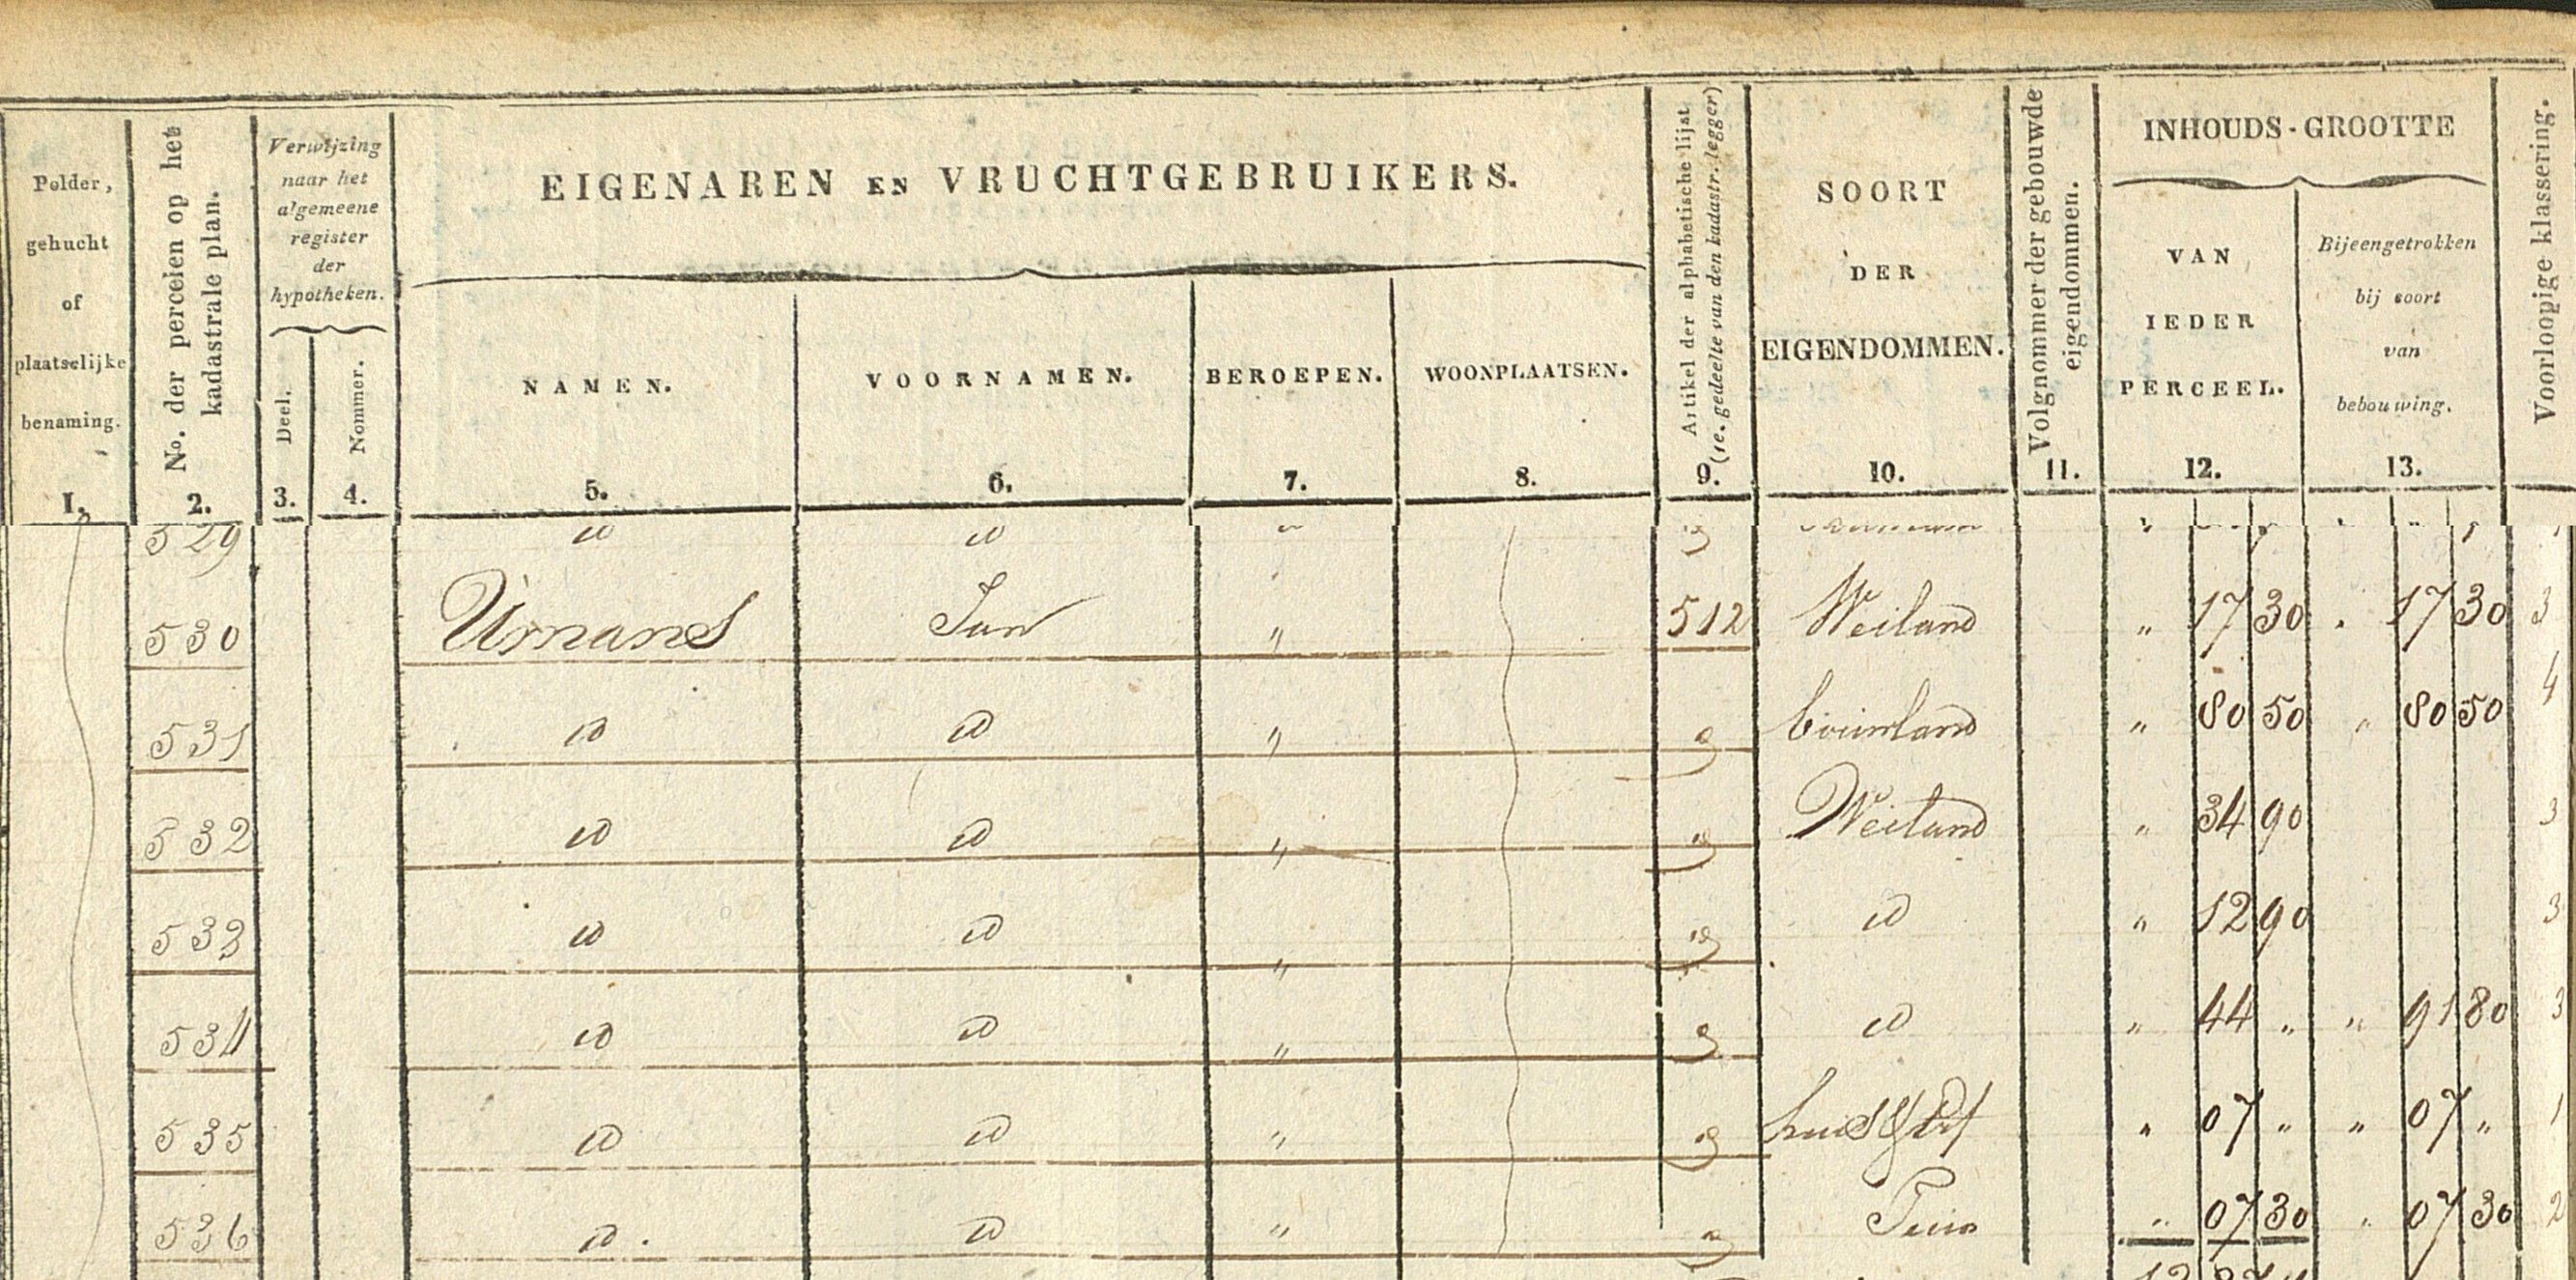 Polder, gehucht of plaatselijke benaming. 1.
No. der perceelen op het kadastrale plan. 2.
Verwijzing naar het algemeene register der hypotheken.
Deel. 3.
Nommer. 4.
EIGENAREN EN VRUCHTGEBRUIKERS.
NAMEN. 5.
VOORNAMEN. 6.
BEROEPEN. 7.
WOONPLAATSEN. 8.
Artikel der alphabetische lijst (1e. gedeelte van den kadastr. legger) 9.
SOORT DER EIGENDOMMEN. 10.
Volgnommer der gebouwde eigendommen. 11.
INHOUDS-GROOTTE
VAN IEDER PERCEEL. 12.
Bijeengetrokken bij soort van bebouwing. 13.
Voorloopige klassering.
529 id id " id
530 Urmans Jan " 512 Weiland " 17 30 . 17 30 3
531 id id " id bouwland " 80 50 " 80 50 4
532 id id " id Weiland " 34 90 3
533 id id " id id " 12 90 3
534 id id " id id " 44 " " 91 80 3
535 id id " id huis & Erf " 07 " " 07 " 1
536 id id " id Tuin " 07 30 " 07 30 2